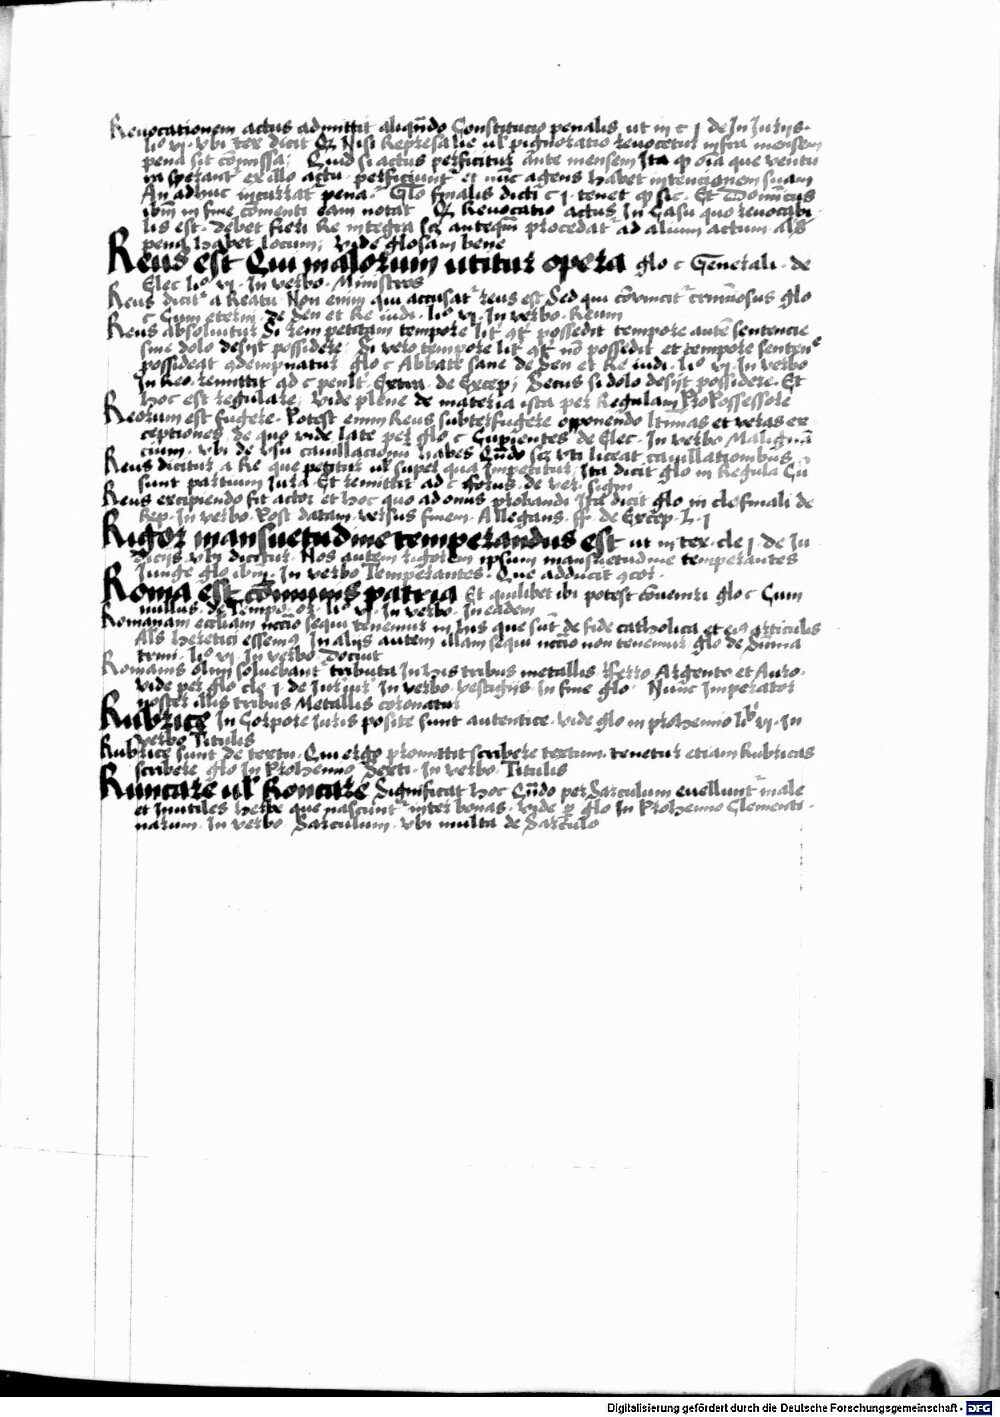 Reuocationem actus admittit aliqñdo Constitucio penalis ut in c j de In Iurijs·
li° vi· Vbi tex dicit Q Nisi Represalie ul' pignoratio reuocetur infra mensem
pena sit cōmissa; Quid si actus perficitur ante mensem Ita ꝙ oīa que ventu
ra sperant' ex illo actu· perficiunt' et nūc agens habet intencionem suam
An adhuc incurrat pena· Glo finalis dicti c j· tenet ꝙ sic· Et Domīcus
ibm in fine cōmenti eam notat Q Reuocatio actus In Casu quo reuocabi
lis est· debet fieri Re integra scz anteqm procedat ad alium actum als
pena habet locum; Vide glosam bene
Reus est Qui malorum utitur opera glo c Generali· de
Elec li° vi· In verbo· Ministros
Reus dicit' a Reatu Non enim qui accusat' reus est Sed qui cōvincit' crimōsus glo
c Cum eterni· de Sen et Re iudi· li° vj· In verbo· Reum
Reus absoluitur Si rem petitam tempore lit' ꝯt' possedit tempore autē sentencie
sine dolo desijt possidere; Si vero tempore lit' ꝯt' nō possedit et tempore senten°
possideat ꝯdempnatur glo c Abbate sane de Sen et Re iudi· li° vj· In verbo
In Reo· remittit ad c penlt· Extra· de Excep; Secus si dolo desijt possidere· Et
hoc est regulare; Vide plene de materia ista per Regulam Pro Possessore
Reorum est fugere· Potest enim Reus subterfugere opponendo ltimas et veras ex
ceptiones· de quo vide late per glo c Cupientes de Elec· In verbo Maligna
cium· Vbi de vsu cauillacionū habes Qñdo scz vti liceat cauillationibus
Reus dicitur a Re que petitur ul' super qua Impetitur· Ita dicit glo in Regula Cū
sunt partium Iura· Et remittit ad c forus· de ver· sign
Reus excipiendo fit actor et hoc quo ad onus probandi Ita dicit glo in cle finali de
Rep· In verbo· Post datam· versus finem· Allegans· ff· de Excep· L· j
Rigor mansuetudine temperandus est ut in tex· cle j· de Iu
dicijs· vbi dicitur· Nos autem rigorem ipsum mansuetudine temperantes
Iunge glo ibm· In verbo Temperantes· Que adducit ꝯcor·
Roma est cōmunis patria Et quilibet ibi potest cōueniri glo c Cum
nullus· de Tempo· or· li° vj· In verbo· In eadem
Romanam eccliam nccio sequi tenemur in his que sūt de fide catholica et eis articulis
Als heretici essem9 In alijs autem illam sequi nccio non tenemur glo de Sūma
trini· li° vj· In verbo· Dociut
Romanis olim soluebant tributa In his tribus metallis s· ferro Argento et Auro·
vide per glo cle j· de Iureiur· In verbo· vestigijs· In fine glo· Nūc Imperator
noster illis tribus Metallis coronatur
Rubrice In Corpore Iuris posite sunt autentice· vide glo in prohemio lib' vj· In
verbo Titulis
Rubrice sunt de textu· Qui ergo promittit scribere textum· tenetur etiam Rubricas
scribere glo In Prohemio Sexti· In verbo· Titulis
Runcare ul' Roncare Significat hoc Qñdo per Sarculum euellunt' male
et Inutiles herbe que nascunt' inter bonas· vide p glo In Prohemio Clementi·
narum· In verbo· Sarculum· vbi multa de Sarculo
Digitalisierung gefördert durch die Deutsche Forschungsgemeinschaft - DFG